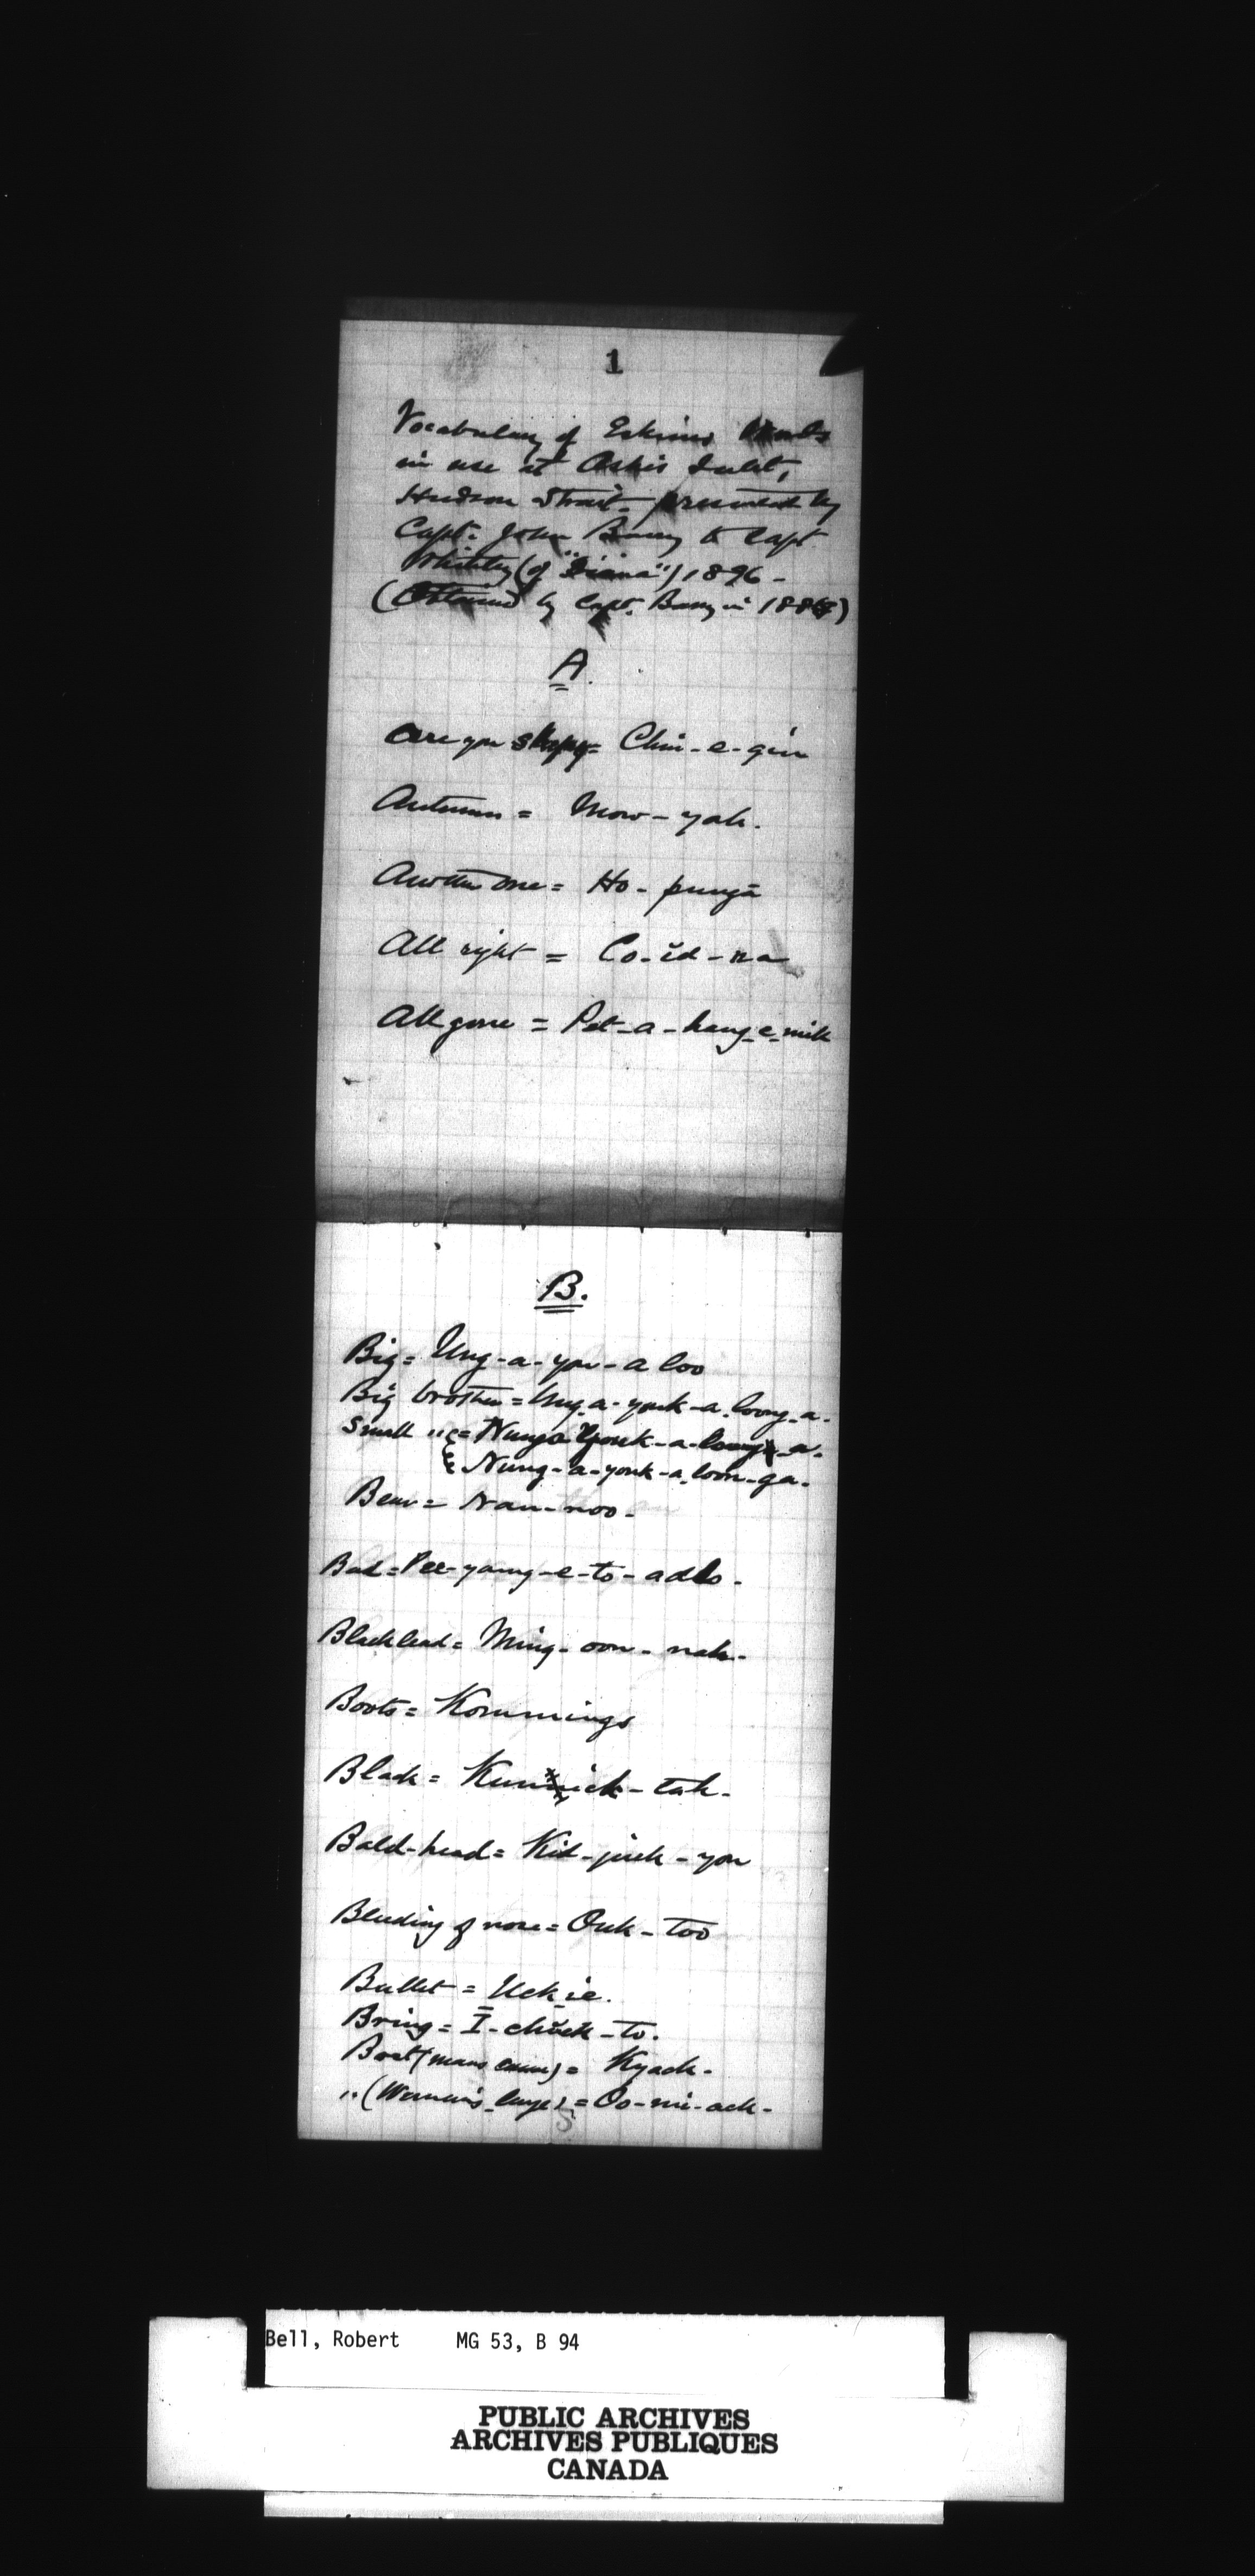 1
Vocabulary of Eskimo Words
in use at Ashe's Inlet,
Hudson Strait. presented by
Capt. John Barry to Capt
Whiteley (of "Diana") 1896 -
(Obtained by Capt. Barry in 188)
A.
Are you sleepy = Chin-e-gin
Autumn = Mow-yah.
Another one = Ho-punga
All right = Co-id-na
All gone = Pet-a-hang-e-mik
B.
Big = Ung-a-you-a loo
Big brother = Ung-a-youk-a-loong-a.
Small " = Nunga youk-a-loong-a.
Nung-a-youk-a-loon-ga.
Bear = Nan-noo-
Bad = Pee-yang-e-to-adlo-
Blacklead = Ming-oon-nah-
Boots = Kommings
Black = Kunick-tah-
Bald-head = Kid-juck-you
Bleeding of nose = Ouk-too
Bullet = Uck-ie.
Bring = I-chock-to.
Boat (mans canoe) = Kyack-
" (Woman's large) = Oo-mi-ack-
Bell, Robert MG 53, B 94
PUBLIC ARCHIVES
ARCHIVES PUBLIQUES
CANADA